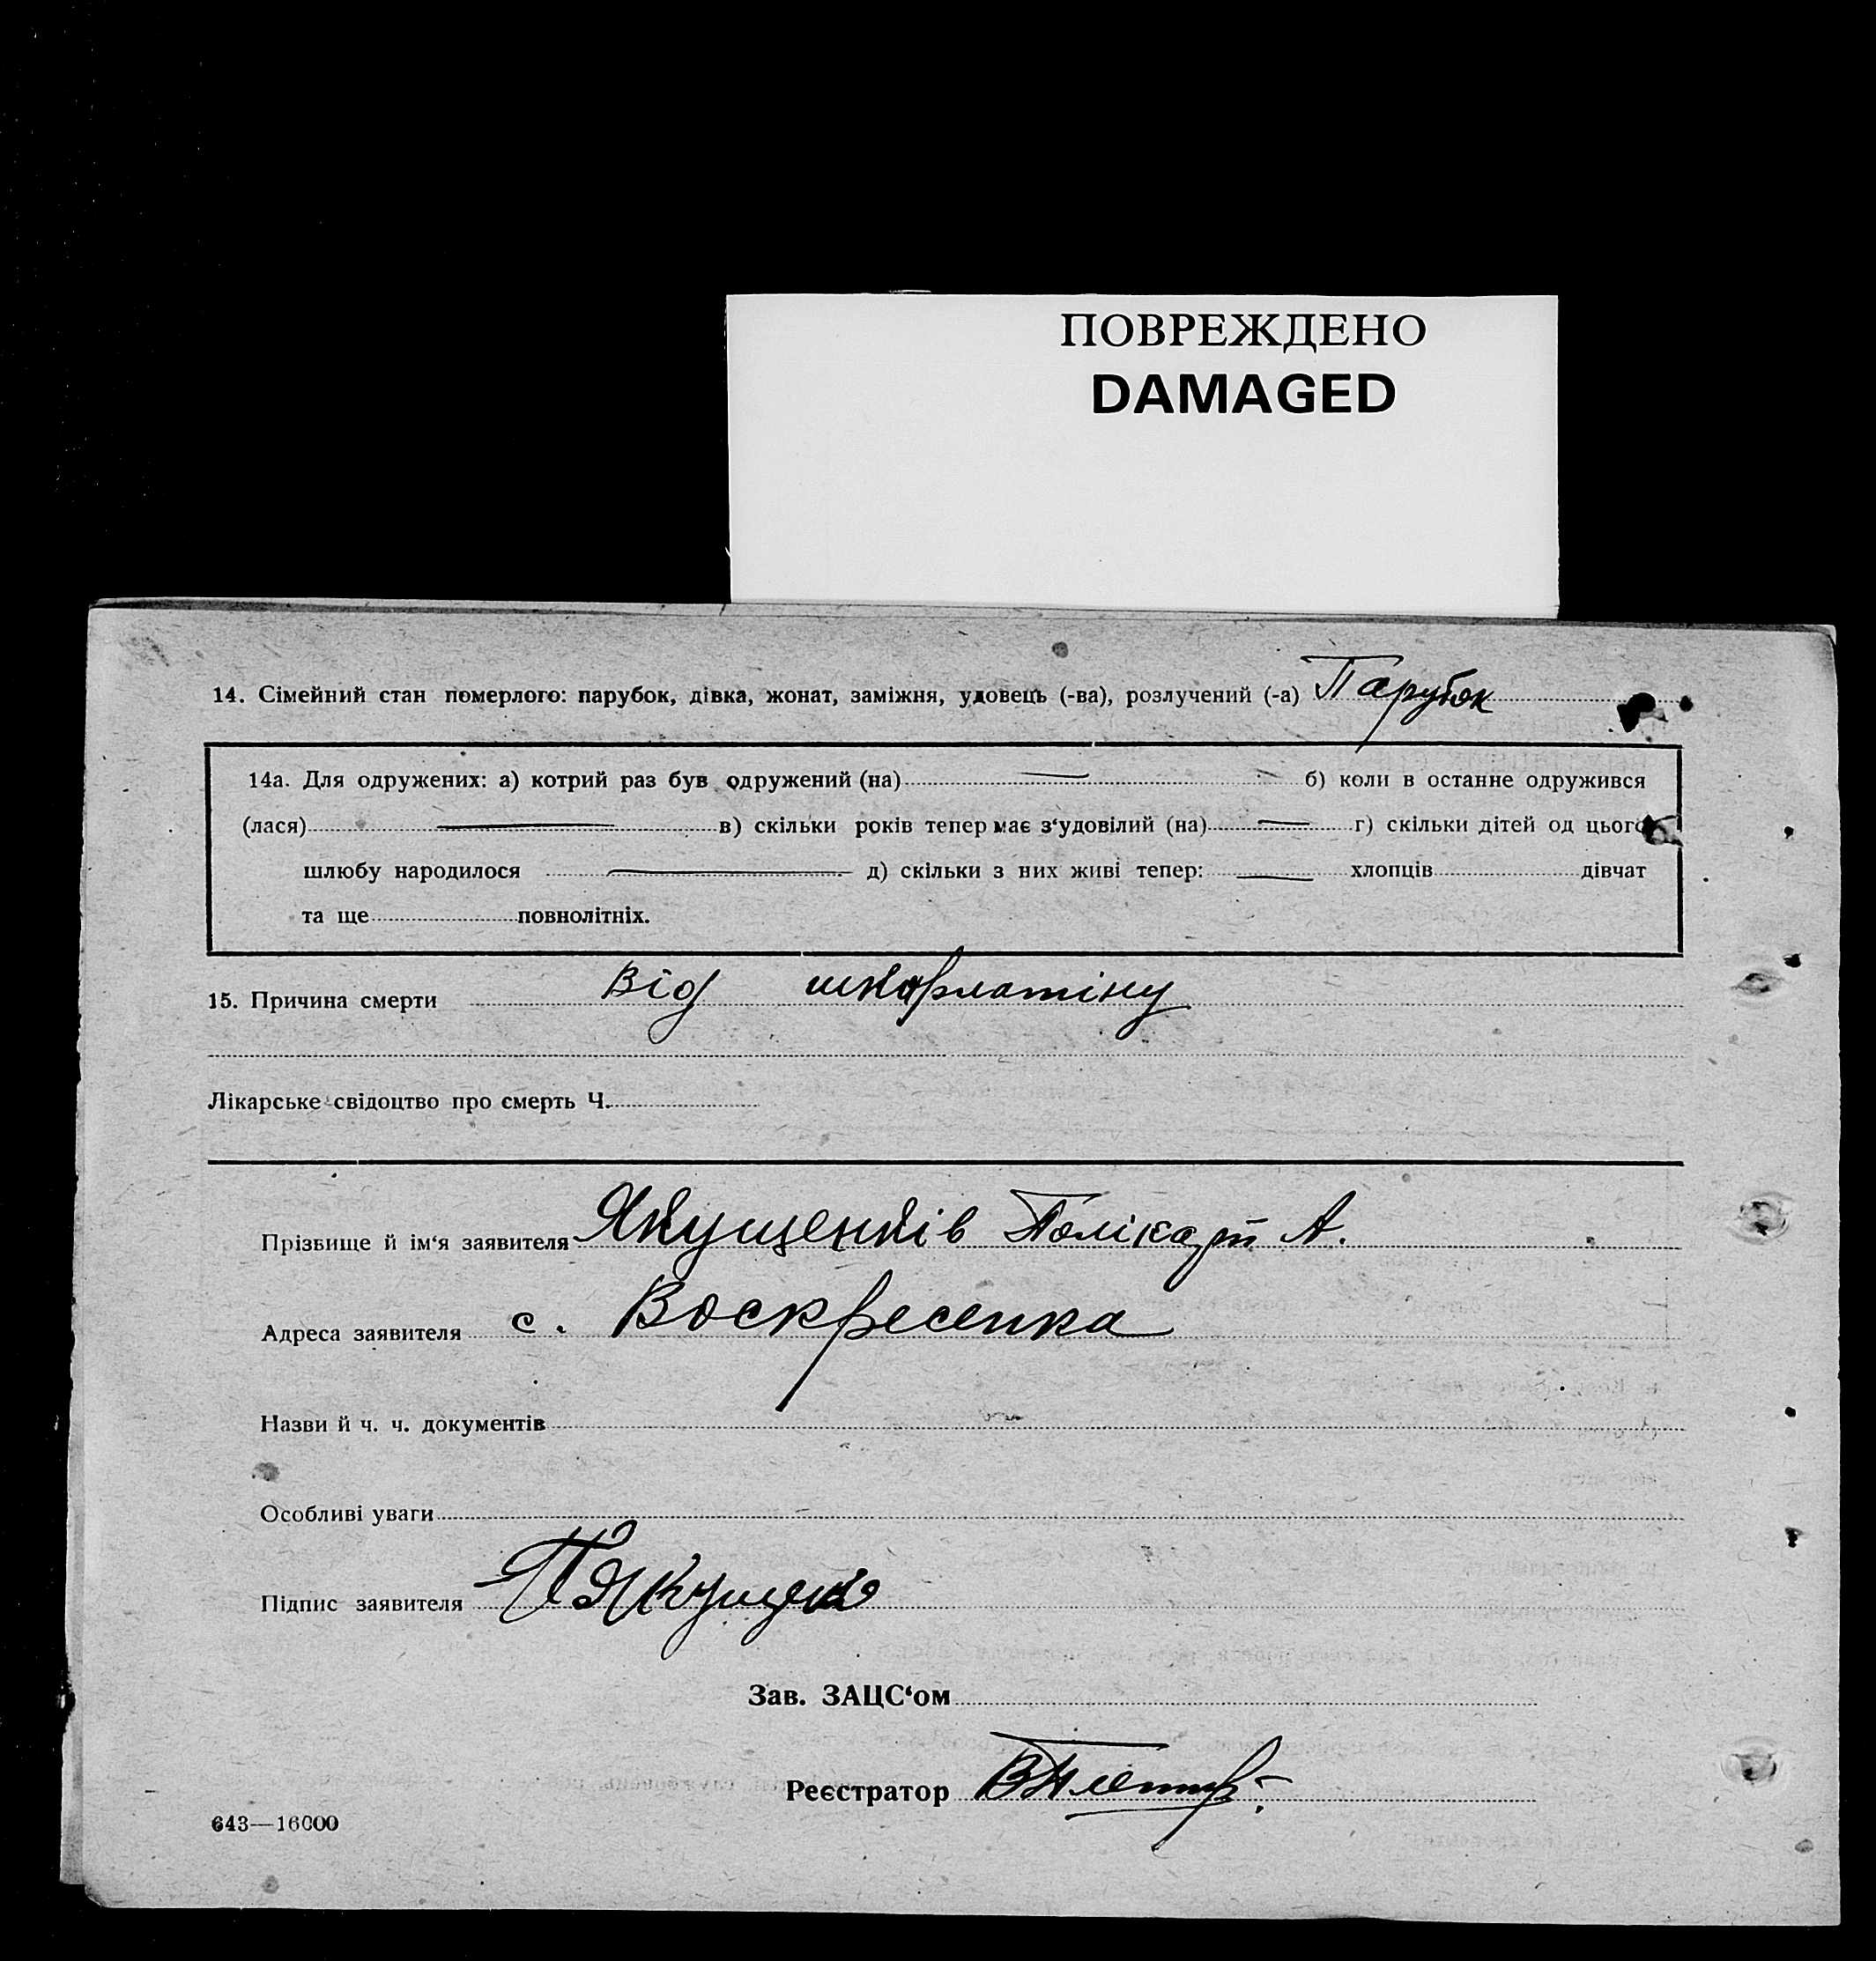 ПОВРЕЖДЕНО
DAMAGED
14. Сімейний стан померлого: парубок, дівка, жонат, заміжня, удовець (-ва), розлучений (-а) Парубок
14а. Для одружених: а) котрий раз був одружений (на) — б) коли в останне одружився
(лася) — в) скільки років тепер має з‘удовілий (на) — г) скільки дітей од цього
шлюбу народилося — д) скільки з них живі тепер: — хлопців дівчат
та ще повнолітніх.
15. Причина смерти від шкорлатіну
Лікарське свідоцтво про смерть Ч.
Прізвище й ім‘я заявителя Якущенків Полікарп А.
Адреса заявителя с. Воскресенка
Назви й ч. ч. документів
Особливі уваги
Підпис заявителя
Зав. ЗАЦС‘ом
Реєстратор
643—16000